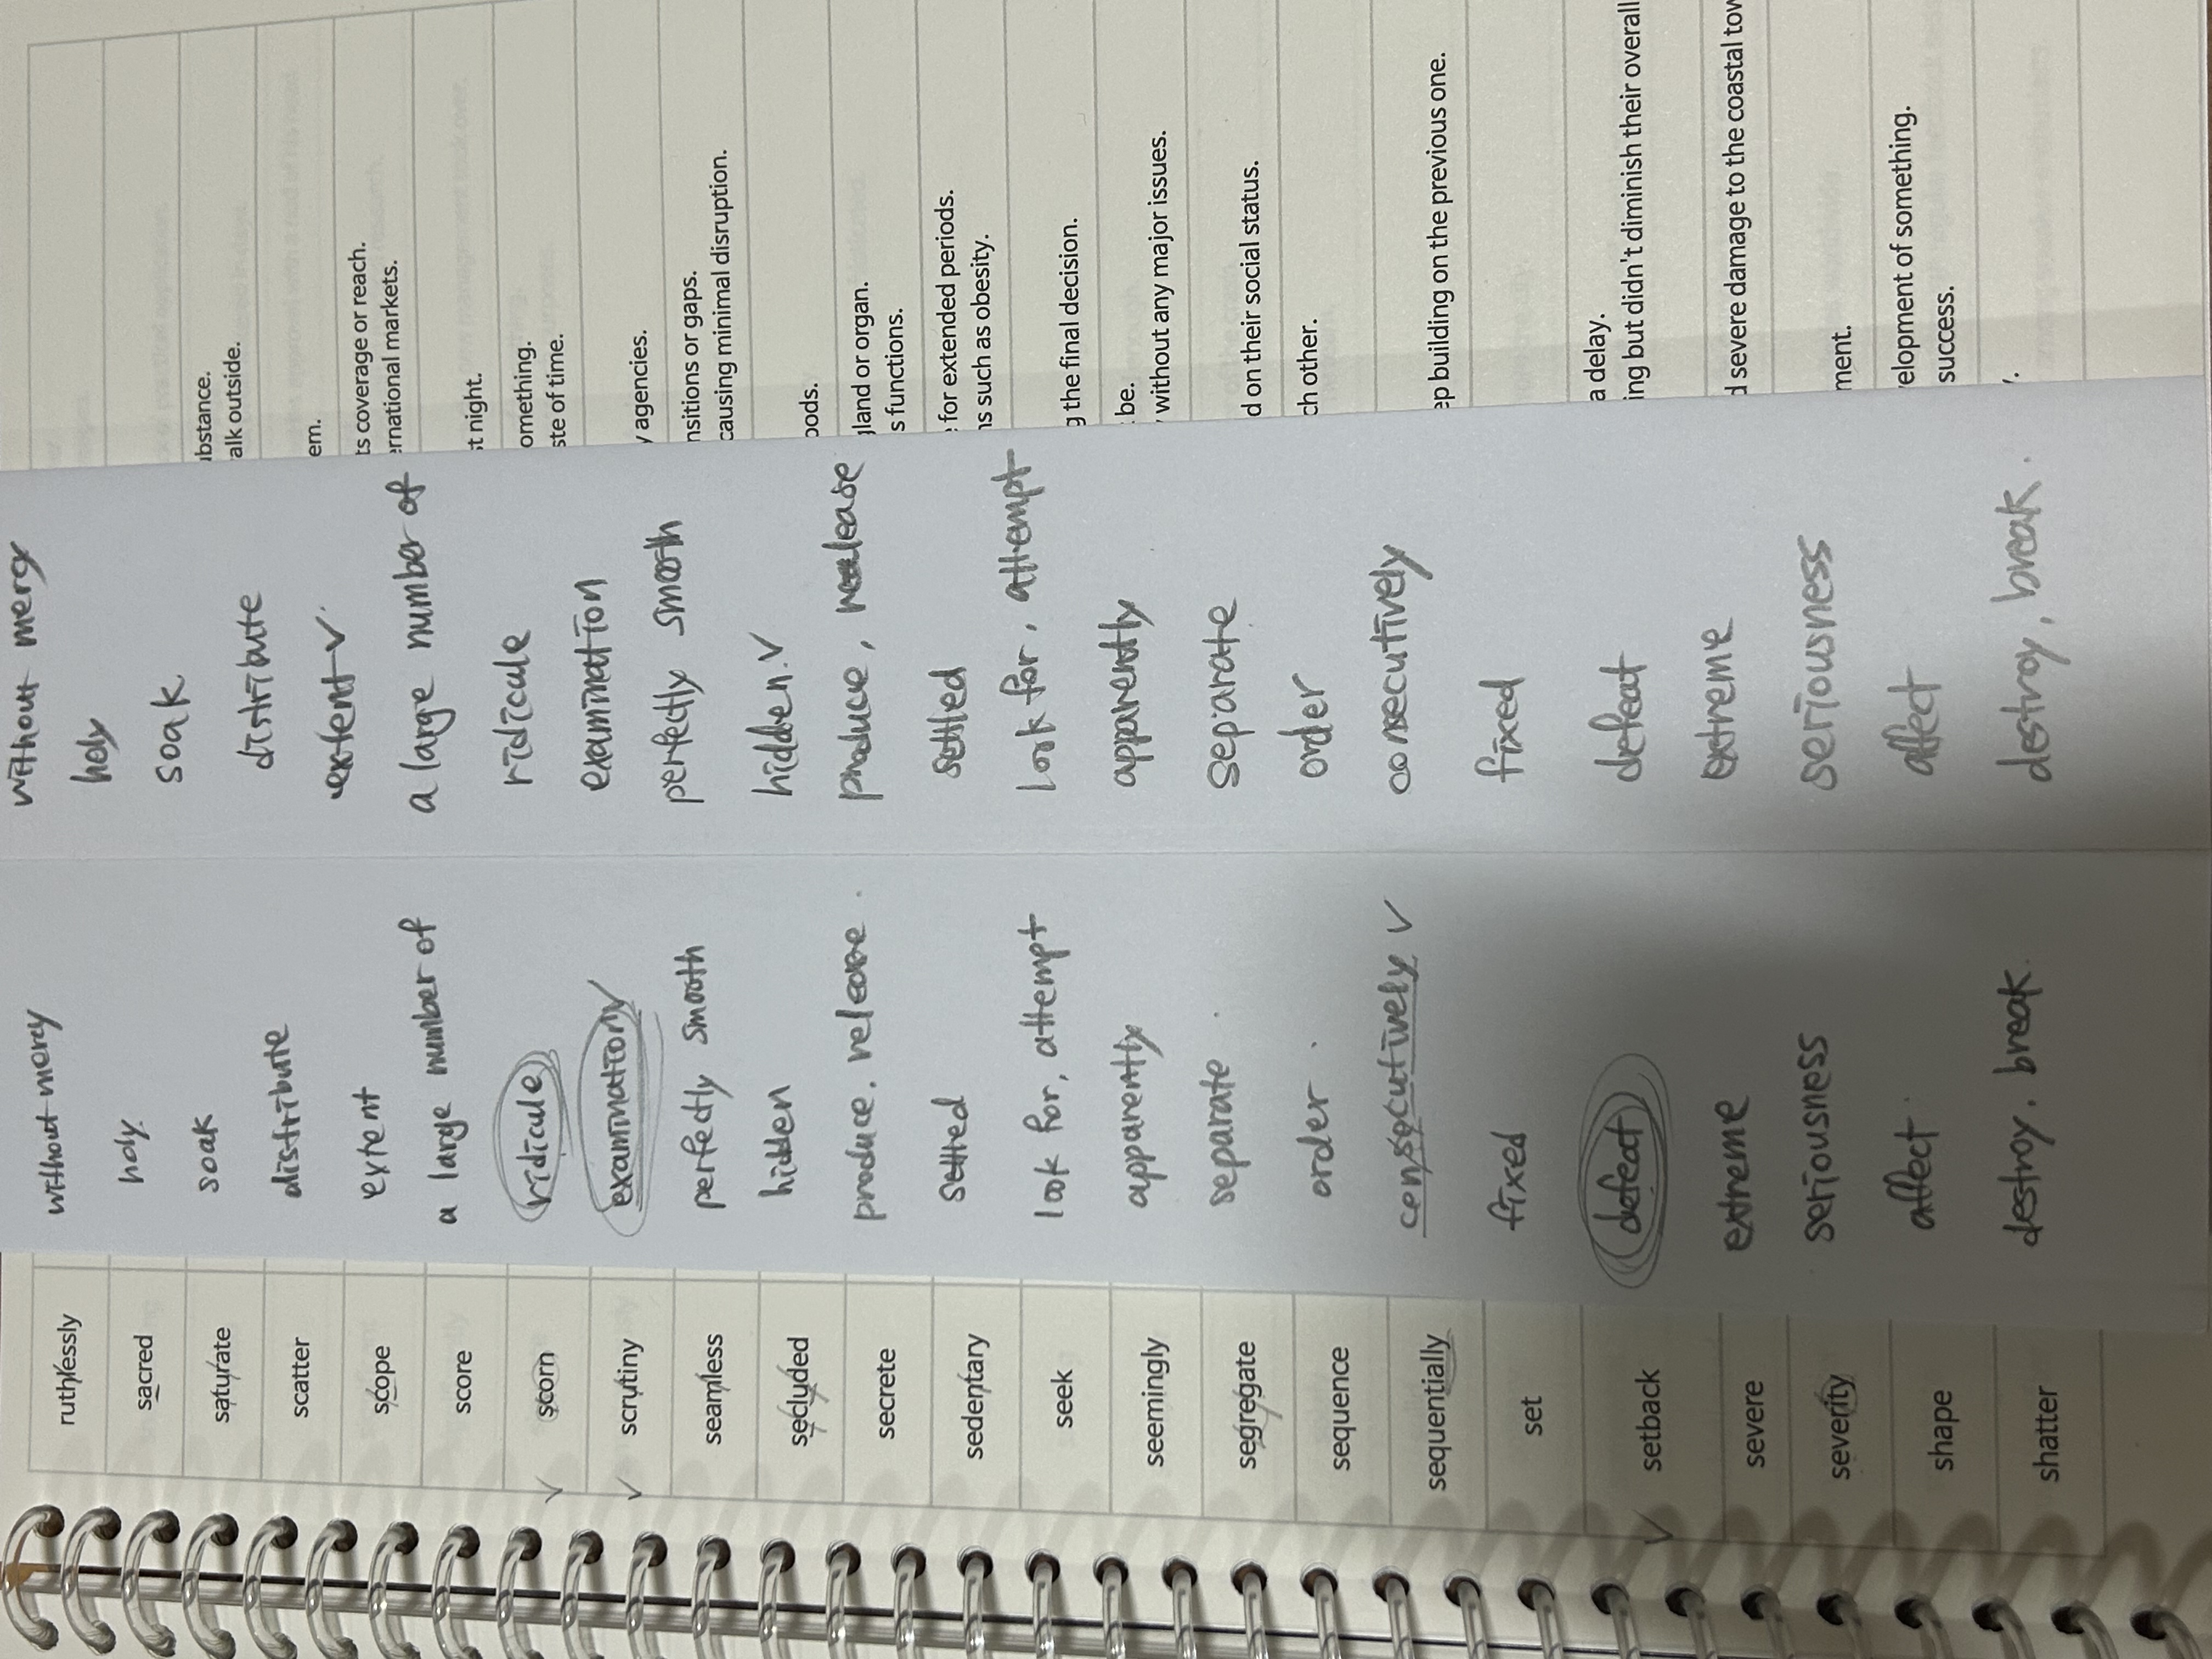 ruthlessly without mercy without mercy
sacred holy holy
saturate soak soak ubstance.
alk outside.
scatter distribute distribute em.
scope extent extent ts coverage or reach.
ernational markets.
score a large number of a large number of st night.
scorn ridicule ridicule omething.
ste of time.
scrutiny examination examination y agencies.
seamless perfectly smooth perfectly smooth nsitions or gaps.
causing minimal disruption.
secluded hidden hidden. oods.
secrete produce. release. produce, release gland or organ.
s functions.
sedentary settled settled for extended periods.
ns such as obesity.
seek look for, attempt look for, attempt g the final decision.
seemingly apparently apparently be.
without any major issues.
segregate separate. separate d on their social status.
sequence order. order ch other.
sequentially consecutively consecutively ep building on the previous one.
set fixed fixed
setback defeat defeat a delay.
ing but didn't diminish their overall
severe extreme extreme d severe damage to the coastal tow
severity seriousness seriousness ment.
shape affect. affect elopment of something.
success.
shatter destroy, break. destroy, break.